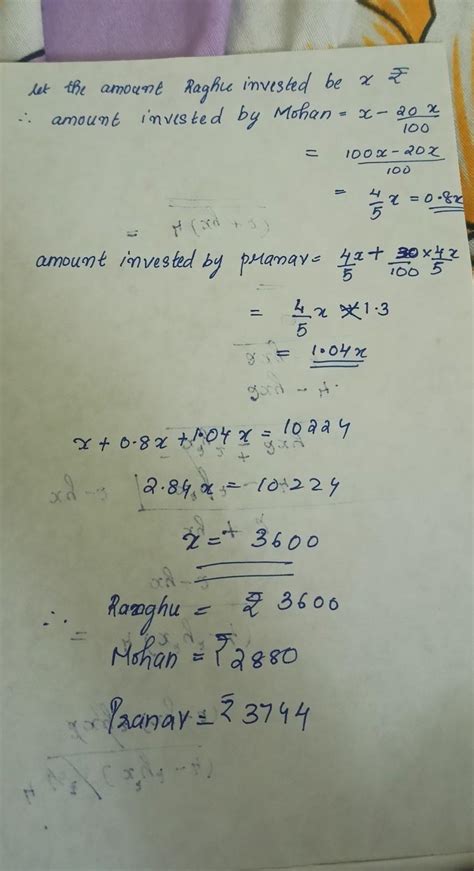 let the amount Raghu invested be x ₹
∴ amount invested by Mohan = x - 20x/100
= 100x - 20x/100
= 4/5 x = 0.8x
amount invested by Pranav = 4x/5 + 30/100 × 4x/5
= 4/5 x × 1.3
= 1.04x
x + 0.8x + 1.04x = 10224
2.84x = 10224
x = 3600
∴ Raghu = ₹ 3600
Mohan = ₹ 2880
Pranav = ₹ 3744